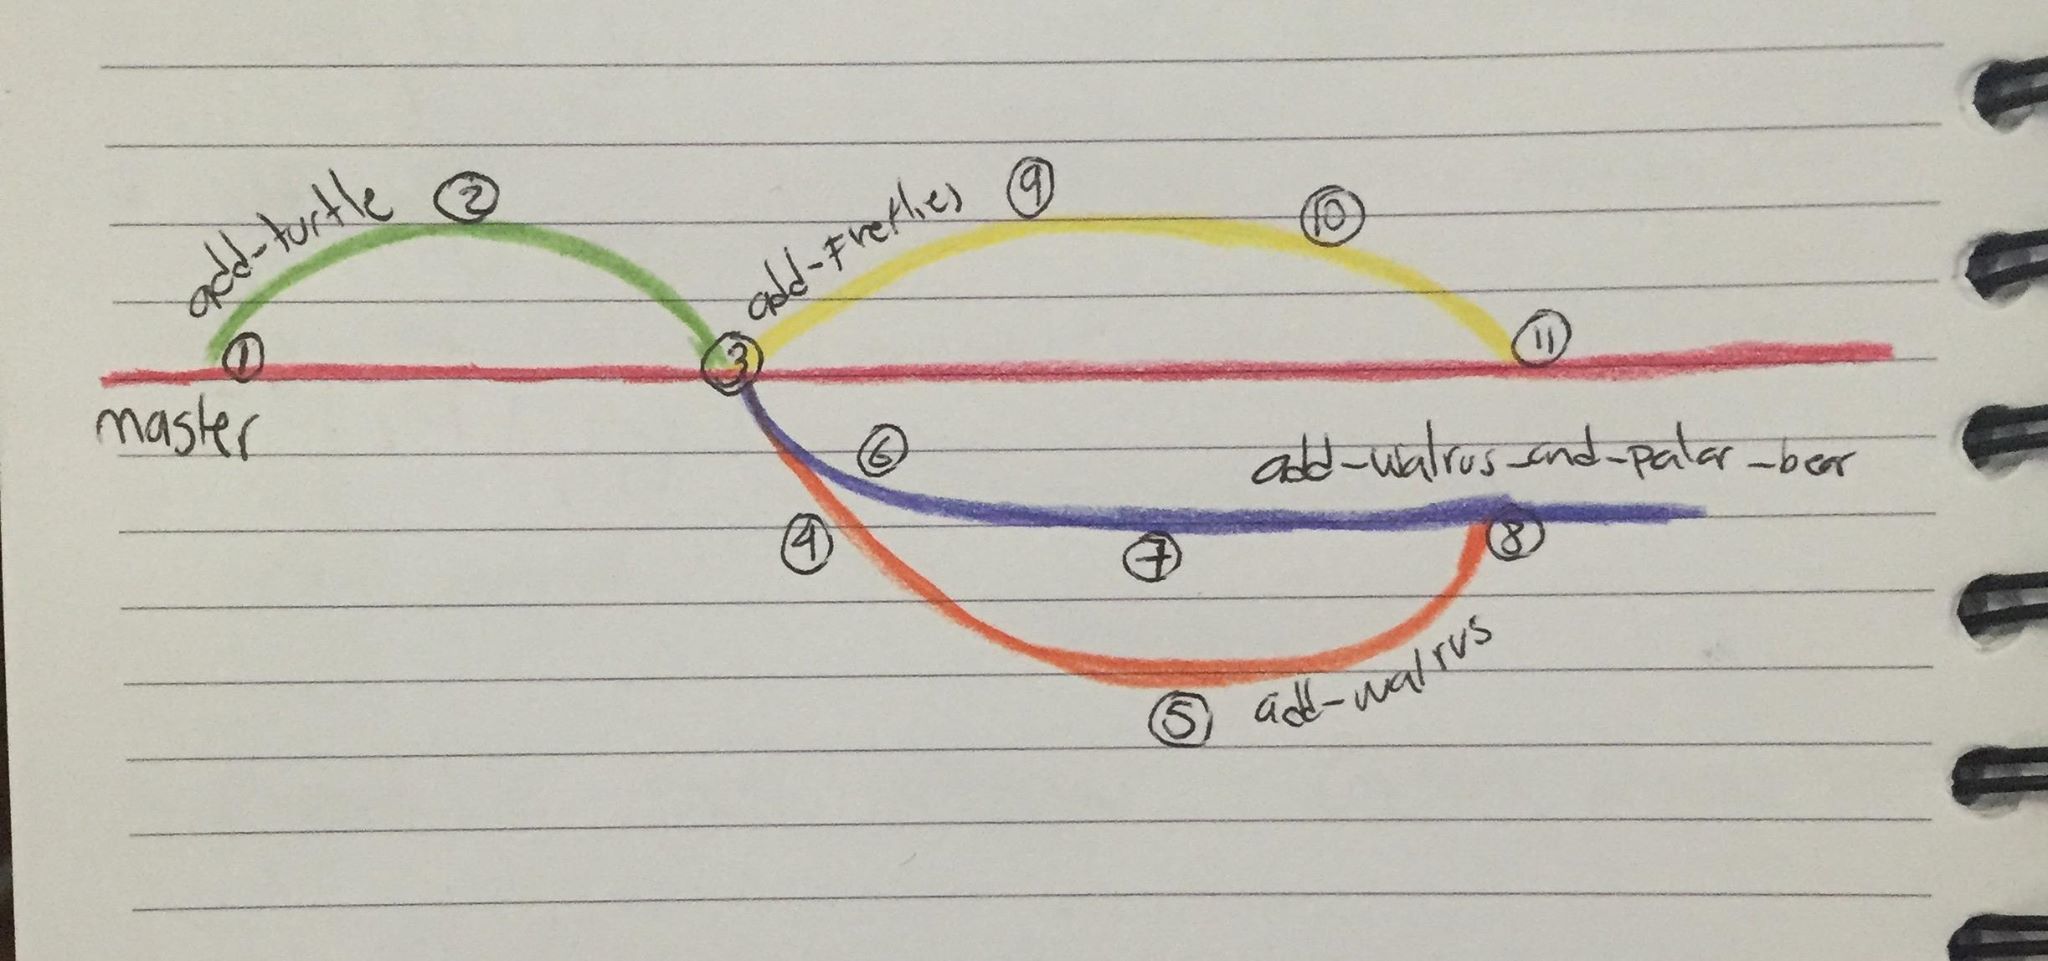 add-turtle
②
add-Freflies
⑨
⑩
①
③
⑪
master
⑥
add-walrus-and-palar-bear
④
⑦
⑧
⑤
add-walrus